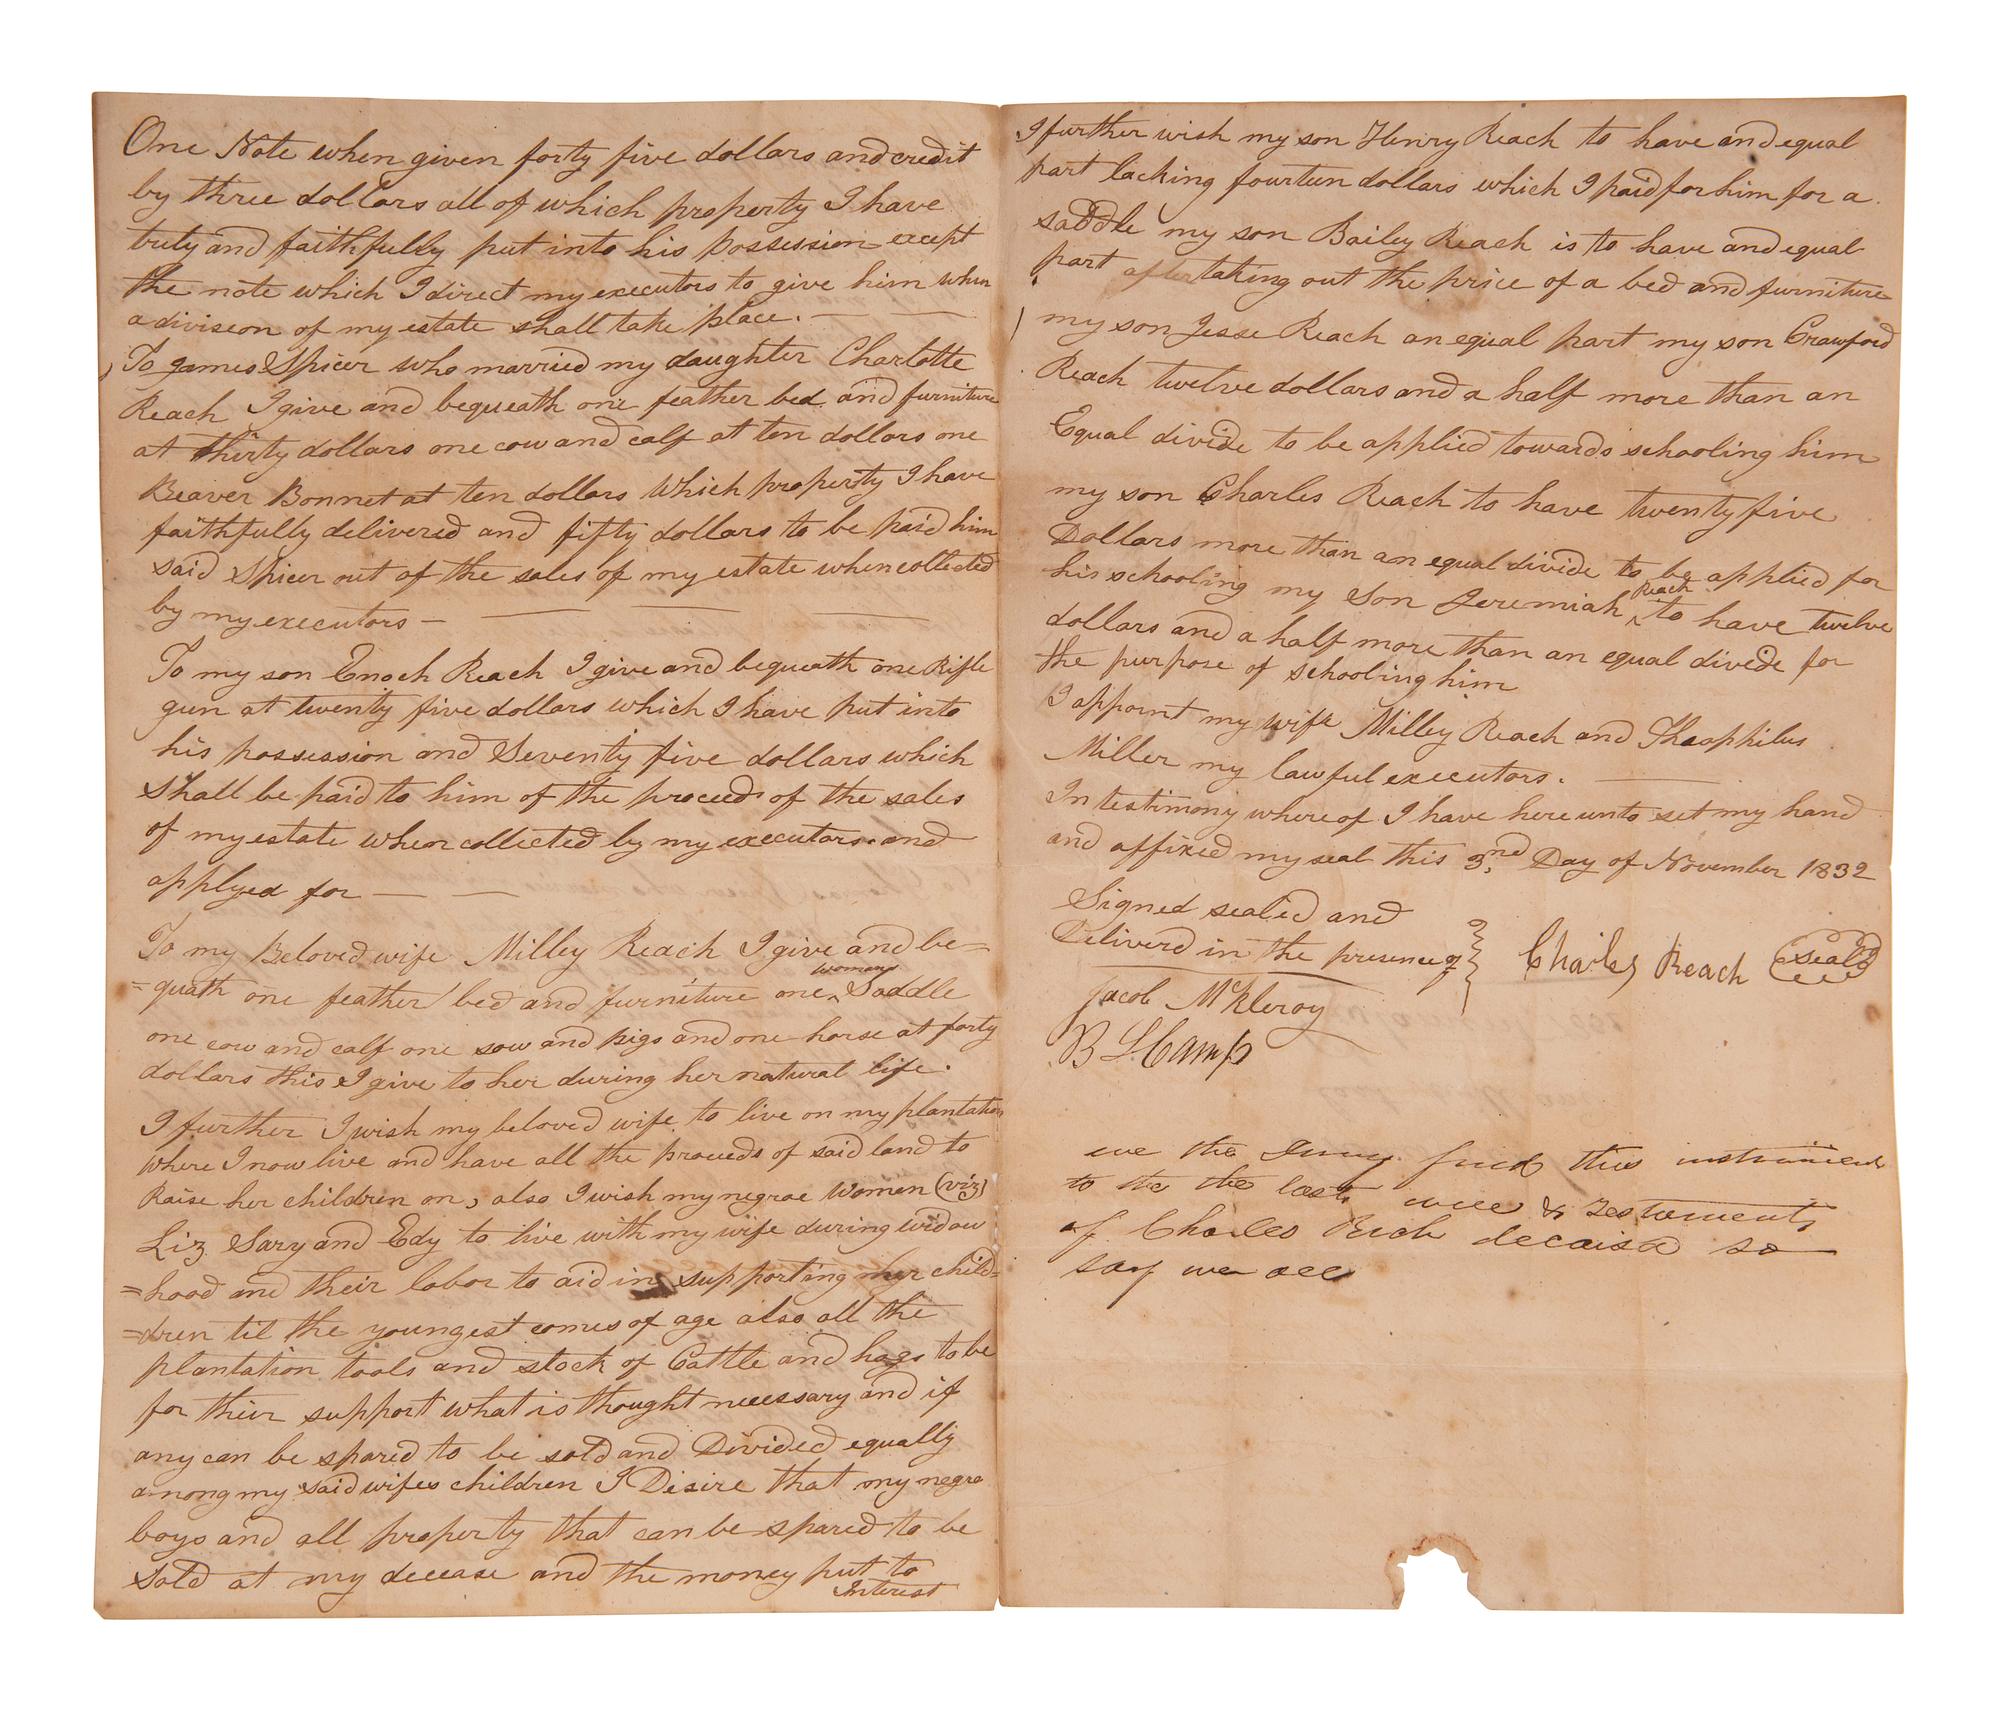 One Note when given forty five dollars and credit
by three dollars all of which property I have
truly and faithfully put into his possession except
the note which I direct my executors to give him when
a diviseon of my estate shall take place. —
To James Spicer who married my daughter Charlotte
Reach I give and bequeath one feather bed and furniture
at thirty dollars one cow and calf at ten dollars one
Beaver Bonnet at ten dollars Which property I have
faithfully delivered and fifty dollars to be paid him
said Spicer out of the sales of my estate when collected
by my executors —
To my son Enoch Reach I give and bequeath one Rifle
gun at twenty five dollars which I have put into
his possession and Seventy five dollars which
Shall be paid to him of the proceeds of the sales
of my estate when collected by my executors. and
applyed for —
To my Beloved wife Milley Reach I give and be=
=quath one feather bed and furniture one womans Saddle
one cow and calf one sow and pigs and one horse at forty
dollars this I give to her during her natural life.
I further I wish my beloved wife to live on my plantation
where I now live and have all the proceeds of said land to
Raise her children on, also I wish my negroe Women (viz)
Liz Sary and Edy to live with my wife during widow
=hood and their labor to aid in supporting her child=
=dren til the youngest comes of age also all the
plantation tools and stock of Cattle and hogs to be
for their support what is thought necessary and if
any can be spared to be sold and Divided equally
among my said wifes children I Desire that my negro
boys and all property that can be spared to be
Sold at my decease and the money put to
Interest
I further wish my son Henry Reach to have and equal
part lacking fourteen dollars which I paid for him for a
saddle my son Bailey Reach is to have and equal
part after taking out the price of a bed and furniture
my son Jesse Reach an equal part my son Crawford
Reach twelve dollars and a half more than an
Equal divide to be applied towards schooling him
my son Charles Reach to have twenty five
Dollars more than an equal divide to be applied for
his schooling my Son Jeremiah Reach to have twelve
dollars and a half more than an equal divide for
the purpose of schooling him
I appoint my wife Milley Reach and Theophilus
Miller my lawful executors. —
In testimony where of I have here unto set my hand
and affixed my seal this 3nd Day of November 1832
Signed sealed and
Deliverd in the presence of
Charles Reach seal
Jacob McKleroy
B L Camp
we the Jurry find this instrument
to the the last will & testements
of Charles Reach decaisd so
say we all